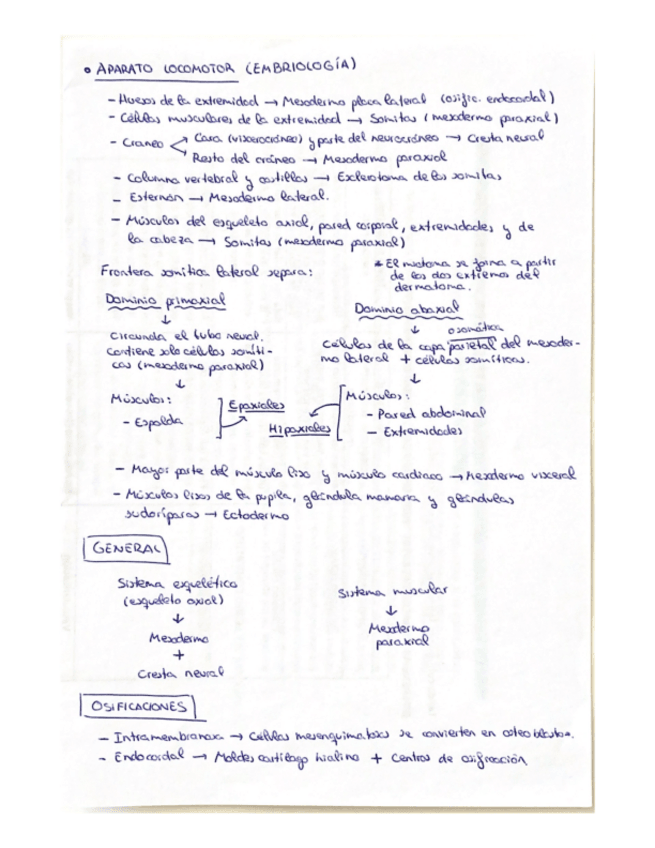 • APARATO LOCOMOTOR (EMBRIOLOGÍA)
- Huesos de la extremidad → Mesodermo placa lateral (osific. endocordal)
- Células musculares de la extremidad → Somitas (mesodermo paraxial)
- Craneo < Cara (viscerocráneo) y parte del neurocráneo → Cresta neural
Resto del cráneo → Mesodermo paraxial
- Columna vertebral y costillas → Esclerotoma de los somitas
- Esternón → Mesodermo lateral.
- Músculos del esqueleto axial, pared corporal, extremidades y de
la cabeza → Somitas (mesodermo paraxial)
* El miotoma se forma a partir
de los dos extremos del
dermatoma.
Frontera somítica lateral separa:
Dominio primaxial
↓
Circunda el tubo neural.
Contiene solo células somíti-
cas (mesodermo paraxial)
↓
Músculos:
- Espalda
Epaxiales
Hipaxiales
Dominio abaxial
↓
o somática
Células de la capa parietal del mesoder-
mo lateral + células somíticas.
↓
Músculos:
- Pared abdominal
- Extremidades
- Mayor parte del músculo liso y músculo cardiaco → Mesodermo visceral
- Músculos lisos de la pupila, glándula mamaria y glándulas
sudoríparas → Ectodermo
GENERAL
Sistema esquelético
(esqueleto axial)
↓
Mesodermo
+
Cresta neural
Sistema muscular
↓
Mesodermo
paraxial
OSIFICACIONES
- Intramembranosa → Células mesenquimatosas se convierten en osteoblastos.
- Endocordal → Moldes cartílago hialino + Centros de osificación